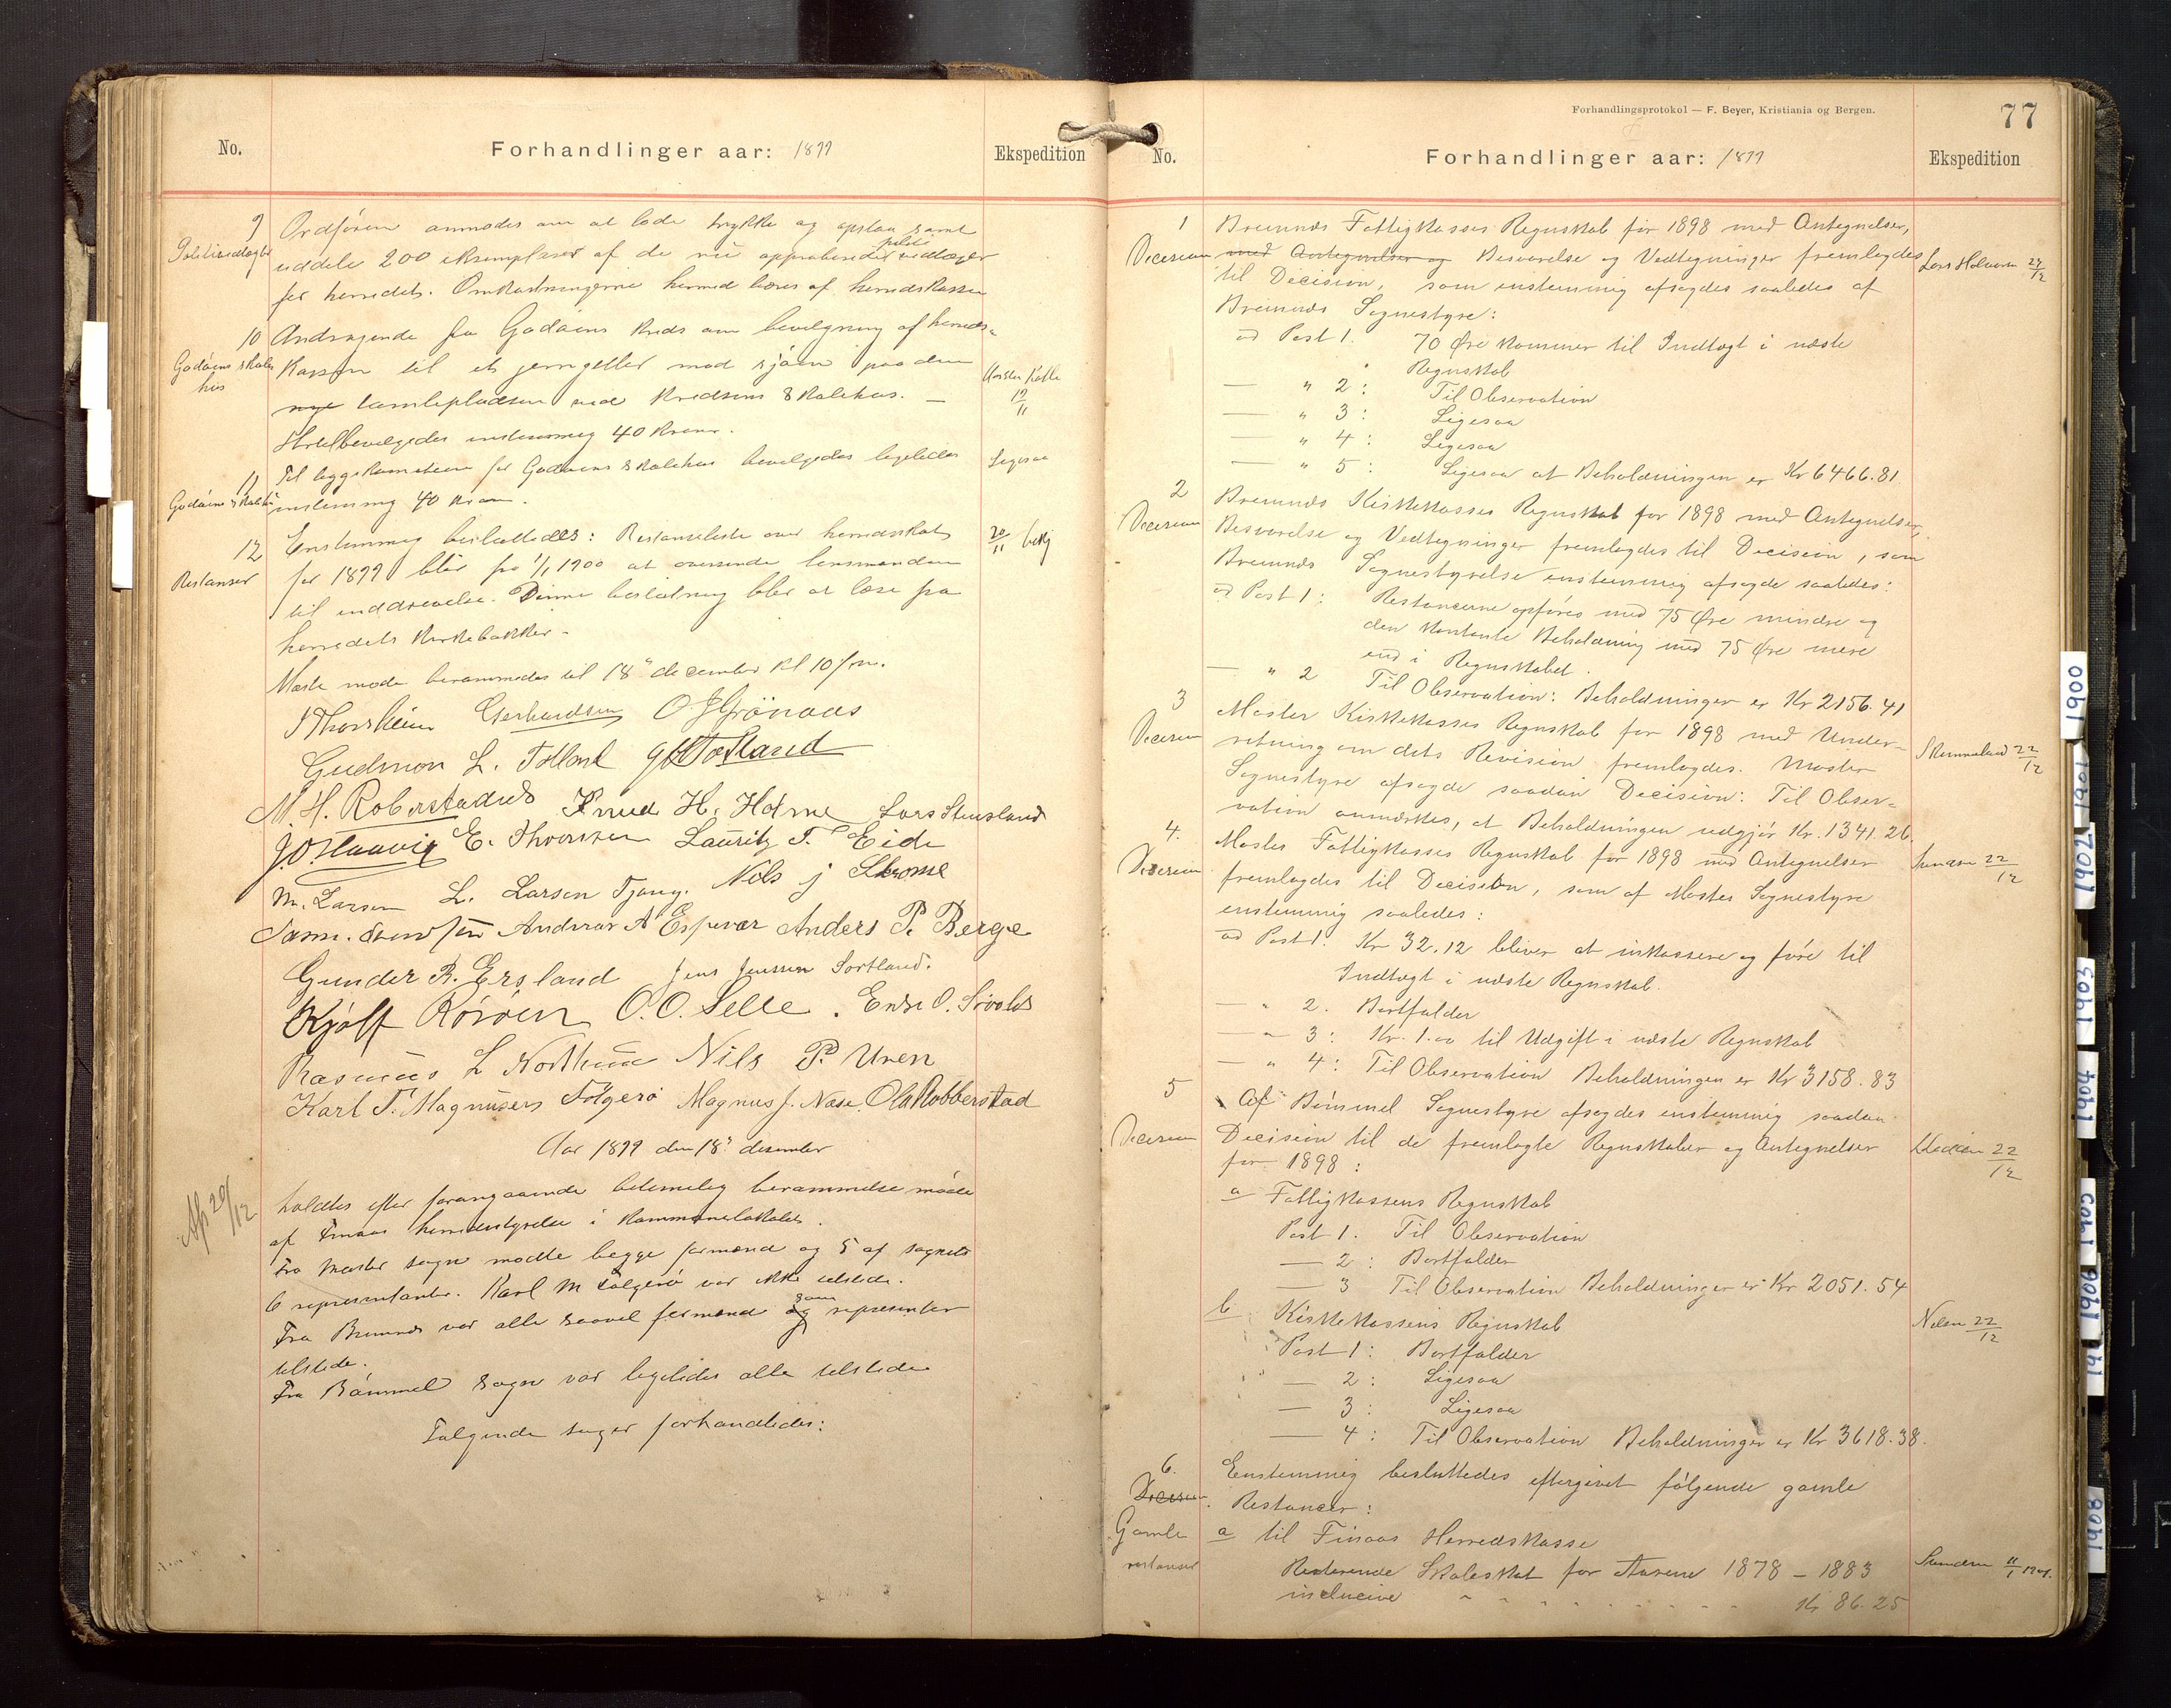 No.
Forhandlinger aar: 1899
Ekspedition
9
Politivedtægter
Ordføren anmodes om at lade trykke og opslaa samt
uddele 200 eksemplarer af de nu approberede politi vedtægter
for herredet. Omkostningerne hermed bæres af herredskassen
10
Godøens skole
hus
Andragende fra Godøens kreds om bevilgning af herreds-
kassen til et jerngjelder mod sjøen paa den
nye tomteplads ved kredsens skolehus. —
Hertil bevilgedes enstemmig 40 kroner.
19/11
11
Godøens skolehus
Til byggekomiteen for Godøens skolehus bevilgedes ligeledes
enstemmig 40 kroner.
Ligesaa
12
Restanser
Enstemmig besluttedes: Restanseliste over herredsskat
for 1899 blir fra 1/1 1900 at oversende lensmanden
til inddrivelse. Denne beslutning blir at læse fra
herredets kirkebakker.
20/11 bekj
Næste møde berammedes til 18de december kl 10 f.m.
J Thorsheim Gerhardsen O J Grönaas
Gudmon L. Totland G H Totland
M. H. Roberstadvd Knud H. Holme Lars Stensland
J. O. Haavig E. Thorsen Lauritz T. Eide
M. Larsen L. Larsen Tjong. Nils J Skrome
Sam. Svendsen Andreas A Espevær Anders P. Berge
Gunder B. Ersland Jens Jenssen Sortland.
Kjølf Rörøen O. O. Selle. Endre O. Sivolds
Rasmus L Northun Nils P. Uren
Karl T. Magnusen Folgerö Magnus J. Næse Ola Robberstad
Aar 1899 den 18de desember
Afs 20/12
holdtes efter forangaaende betimelig berammelse møde
af Finaas herredsstyrelse i kommunelokalet.
Fra Moster sogn mødte begge formænd og 5 af sognets
6 representanter. Karl M Folgerø var ikke tilstede.
Fra Bremnes var alle saavel formænd og som representer
tilstede.
Fra Bømmel sogn var ligeledes alle tilstede
Følgende sager forhandledes:
Forhandlingsprotokol — F. Beyer, Kristiania og Bergen.
77
No.
Forhandlinger aar: 1899
Ekspedition
1
Decision
Bremnes Fattigkasses Regnskab for 1898 med Antegnelser,
med Antegnelser og Besvarelse og Vedtegninger fremlagdes
til Decision, som enstemmig afsagdes saaledes af
Bremnes Sognestyre:
Lars Holmen 22/12
ad Post 1. 70 Øre kommer til Indtægt i næste
Regnskab
— " 2: Til Observation
— " 3: Ligesaa
— " 4: Ligesaa
— " 5: Ligesaa at Beholdningen er Kr 6466.81
2
Decision
Bremnes Kirkekasses Regnskab for 1898 med Antegnelser,
Besvarelse og Vedtegninger fremlagdes til Decision, som
Bremnes Sognestyrelse enstemmig afsagde saaledes:
ad Post 1: Restancerne opføres med 75 Øre mindre og
den kontante Beholdning med 75 Øre mere
end i Regnskabet.
— " 2 Til Observation: Beholdningen er Kr 2156.41
3
Decision
Moster Kirkekasses Regnskab for 1898 med Under-
retning om dets Revision fremlagdes. Moster
Sognestyre afsagde saadan Decision: Til Obser-
vation anmærkes, at Beholdningen udgjør Kr. 1341.26.
Skimmeland 22/12
4.
Decision
Moster Fattigkasses Regnskab for 1898 med Antegnelser
fremlagdes til Decision, som af Moster Sognestyre
enstemmig saaledes:
22/12
ad Post 1. Kr 32.12 bliver at inkassere og føre til
Indtægt i næste Regnskab.
— " 2. Bortfalder
— " 3: Kr. 1.00 til Udgift i næste Regnskab
— " 4: Til Observation Beholdningen er Kr 3158.83
5
Decision
Af Bømmel Sognestyre afsagdes enstemmig saadan
Decision til de fremlagte Regnskaber og Antegnelser
for 1898:
22/12
a Fattigkassens Regnskab
Post 1. Til Observation
— 2: Bortfalder
— 3 Til Observation Beholdningen er Kr 2051.54
b Kirkekassens Regnskab
Nelsen 22/12
Post 1: Bortfalder
— 2: Ligesaa
— 3: Ligesaa
— 4: Til Observation Beholdningen er Kr 3618.38.
6.
Decision
Gamle
restanser
Enstemmig besluttedes eftergivet følgende gamle
Restancer:
a til Finaas Herredskasse
Resterende Skoleskat for Aarene 1878 – 1883
inclusive Kr 86.25
1900
1901
1902
1903
1904
1905
1906
1908